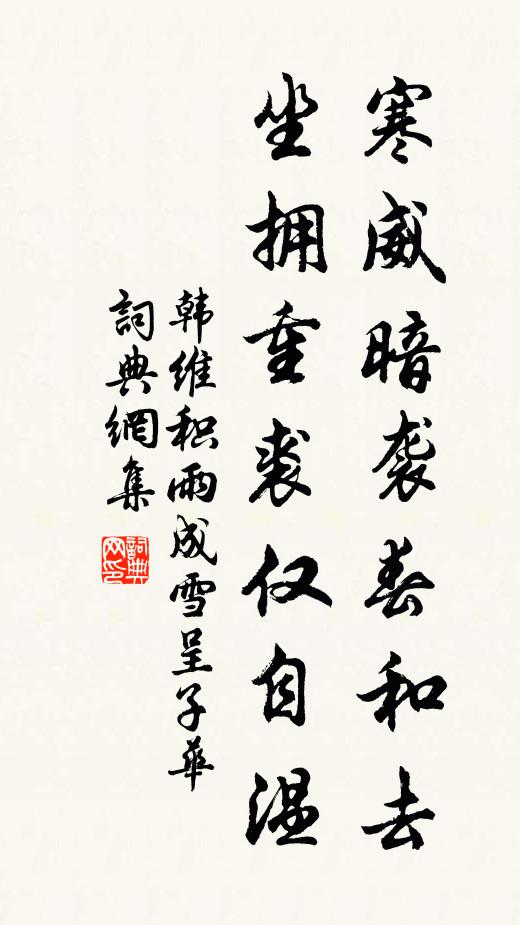 寒威暗袭春和去
坐拥重裘仅自温
韩维积雨成雪呈子華
詞典網集
詞典网印